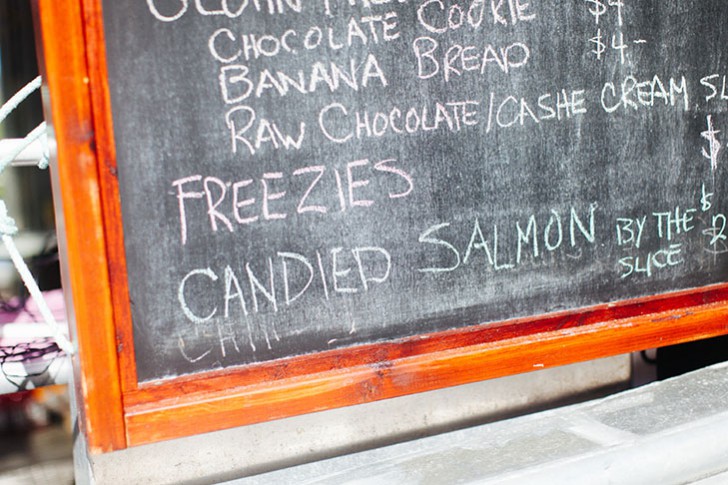 CHOCOLATE COOKIE $4
BANANA BREAD $4-
RAW CHOCOLATE/CASHE CREAM SL
FREEZIES $
CANDIED SALMON BY THE $2
SLICE